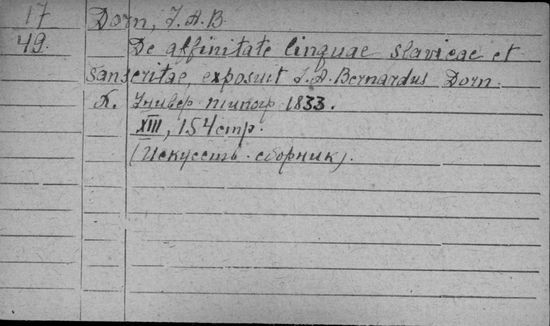 17 Dorn, J.A.B.
49. De affinitate linguae slavicae et
sanscritae, exposuit J.A. Bernardus Dorn.
Х. Универ типогр 1833.
XIII, 154 стр.
(Искусств. сборник).